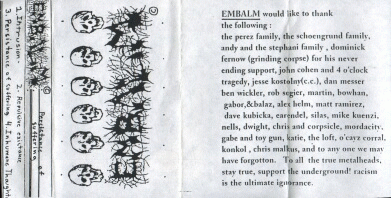 1. Intrusion.
2. Repulsive existance
3. Persistance of suffering
4. Inhumane Thought
EMBALM
Persistance of
suffering
EMBALM
EMBALM would like to thank
the following :
the perez family, the schoengrund family,
andy and the stephani family , dominick
fernow (grinding corpse) for his never
ending support, john cohen and 4 o'clock
tragedy, jesse kostolny(c.c.), dan messer
ben wickler, rob segier, martin, bowhan,
gabor,&balaz, alex helm, matt ramirez,
dave kubicka, earendel, silas, mike kuenzi,
nells, dwight, chris and corpsicle, mordacity,
gabe and toy gun, katie, the loft, o'cayz corral,
konkol , chris malkus, and to any one we may
have forgotton. To all the true metalheads,
stay true, support the underground! racism
is the ultimate ignorance.